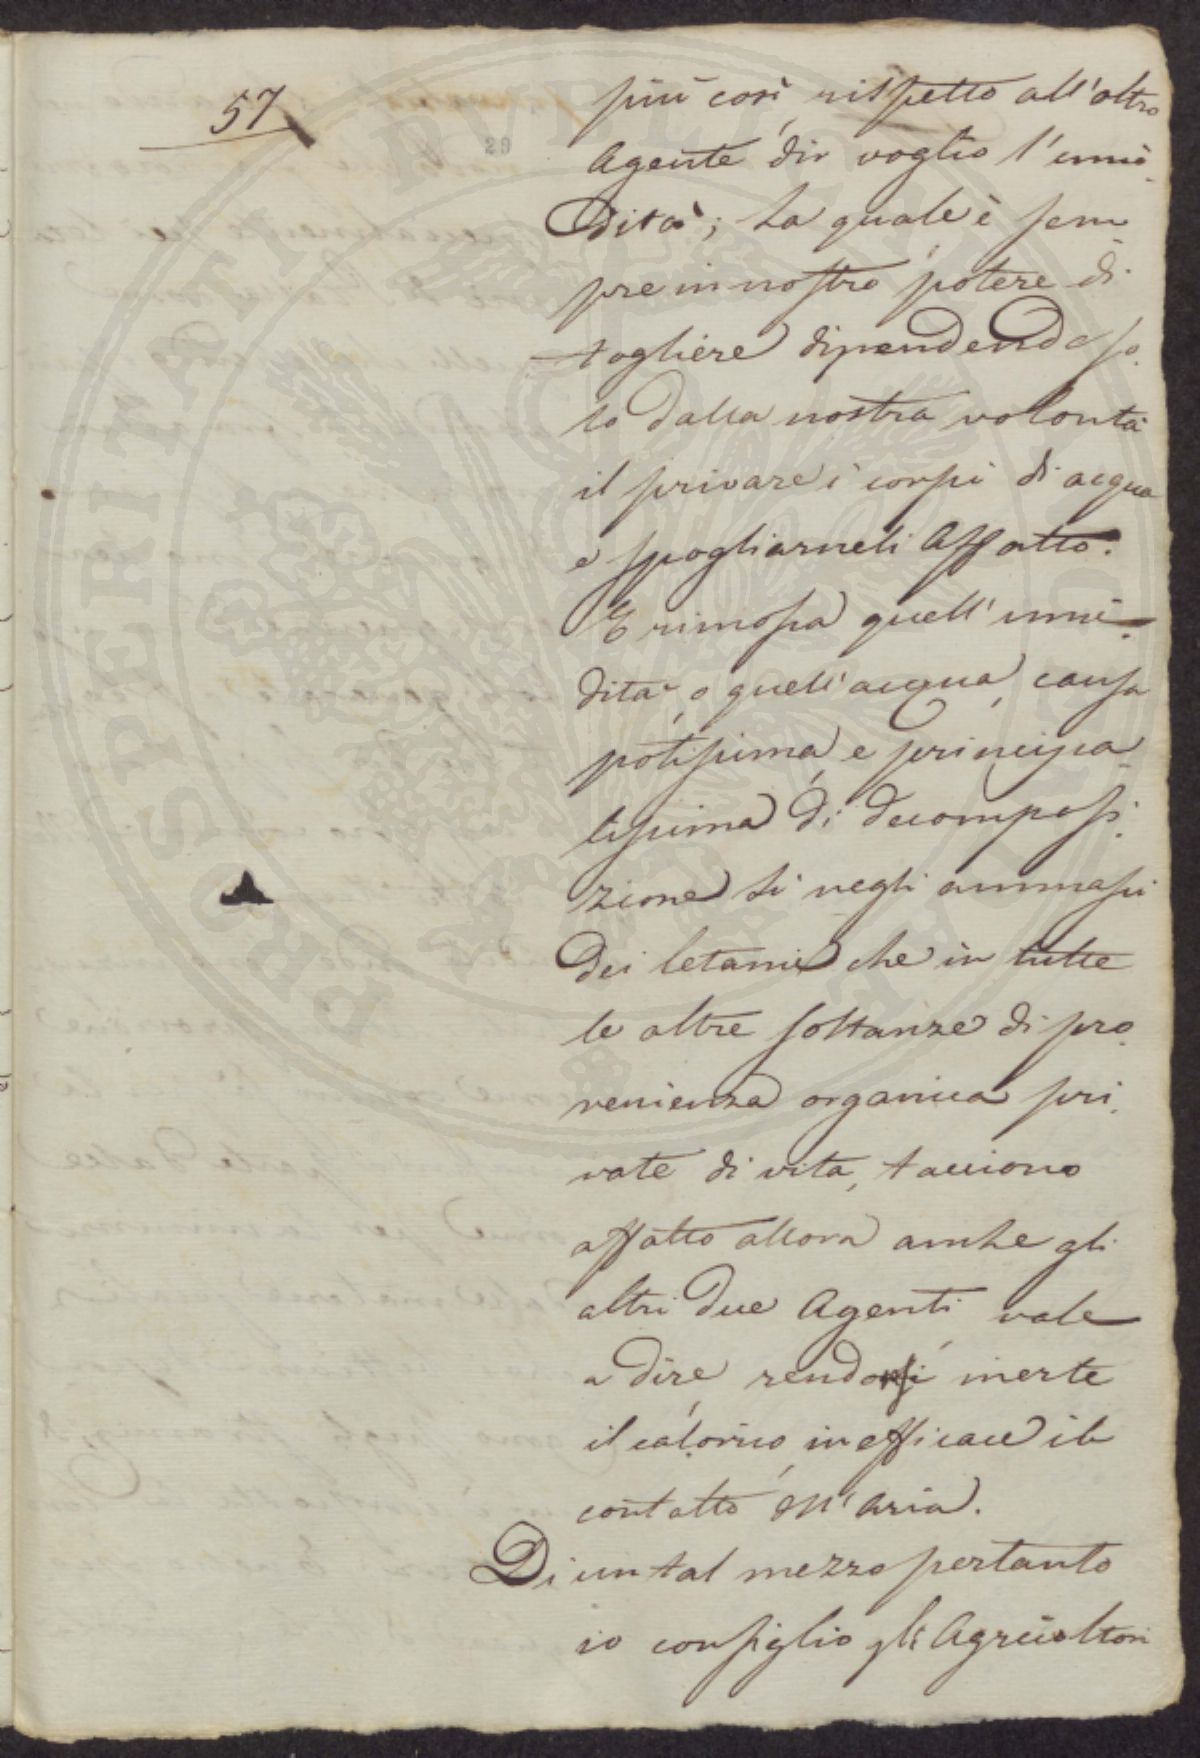 57
29
più così rispetto all'altro
Agente dir voglio l'umi-
dità; la quale è sem
pre in nostro potere di
togliere dipendendo so.
lo dalla nostra volontà
il privare i corpi di acqua
e spogliarneli Affatto.
E rimossa quell'umi-
dità o quell'acqua, causa
potissima e principa-
lissima di decomposi.
zione sì negli ammassi
dei letami che in tutte
le altre sostanze di pro.
venienza organica pri.
vate di vita, tacciono
affatto allora anche gli
altri due Agenti vale
a dire rendonsi inerte
il calorico, inefficace il
contatto dell'Aria.
Di un tal mezzo pertanto
io consiglio gli Agricoltori
PROSPERITATI PUBLICAE AUGENDAE